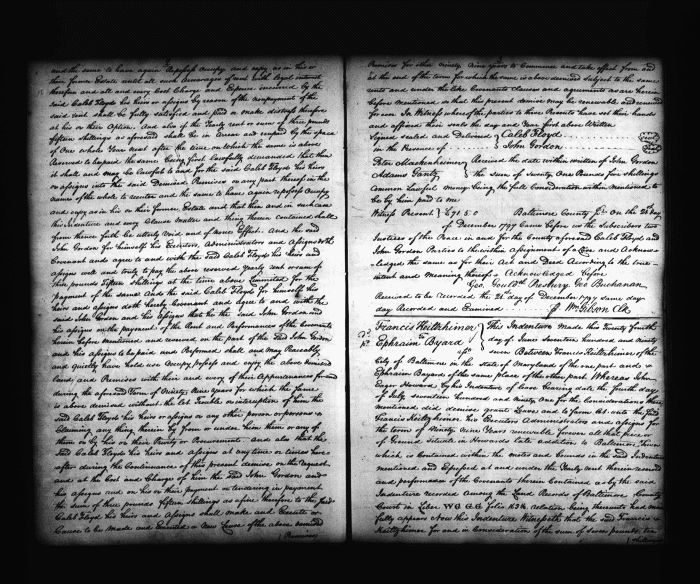 and the same to have again Repossess occupy and enjoy as in his or
their former Estate until all such Arrearages of rent with legal interest
therefor and all and every Cost Charge and Expence incurred by the
said Caleb Floyd his heirs or assigns by reason of the nonpayment of the
said rent shall be fully satisfied and paid or made distress therefor
at his or their Option. And also if the Yearly rent or sum of three pounds
fifteen shillings as afore said shall be in Arrear and unpaid by the space
of One whole Year next after the time on which the same is above
Reserved to be paid the same being first Lawfully demanded that then
it shall and may be Lawful to and for the said Caleb Floyd his heirs
or assigns into the said Demised Premises or any part thereof in the
name of the whole to reenter and the same to have again repossess occupy
and enjoy as in his or their former Estate and that then and in such case
this Indenture and every Clause Matter and thing therein contained shall
from thence forth be utterly Void and of none Effect. And the said
John Gordon for himself his Executors Administrators and Assigns doth
Covenant and agree to and with the said Caleb Floyd his heirs and
assigns well and truly to pay the above reserved Yearly rent or sum of
three pounds Fifteen Shillings at the time above Limmited for the
payment of the same And the said Caleb Floyd for himself his
heirs and assigns doth hereby Covenant and agree to and with the
said John Gordon and his assigns that he the said John Gordon and
his assigns on the payment of the Rent and Performances of the Covenants
herein before Mentioned and reserved on the part of the said John Gordon
and his assigns to be paid and Performed shall and may Peaceably
and Quietly have hold use Occupy possess and enjoy the above demised
land and Premises with their and every of their Appurtenances for and
during the aforesaid Term of Ninety Nine Years for which the same
is above demised without the Let Trouble or interruption of him the
said Caleb Floyd his heirs or assigns or any other person or persons
Claiming any thing therein by from or under him them or any of
them or by his or their Privity or Procurement. And also that the
said Caleb Floyd his heirs and assigns at any time or times here
after during the Continuance of this present demise on the request
and at the Cost and Charge of him the said John Gordon and
his assigns and on his or their payment or tendering in payment
the sum of three pounds fifteen shillings as a fine therefor to the said
Caleb Floyd his heirs and Assigns shall make and Execute or
Cause to be made and Executed a New Lease of the above demised
Premises
Premises for other Ninety Nine years to Commence and take effect from and
at the end of the term for which the same is above demised subject to the same
rents and under the like Covenants clauses and agreements as are herein
before Mentioned so that this present demise may be renewable and renewed
for ever. In Witness whereof the parties to these Presents have set their hands
and affixed their seals the day and Year first above Written
Signed sealed and Delivered Caleb Floyd
in the Presence of John Gordon
Peter Mackenheimer Received the date within written of John Gordon
Adams Fantz the sum of Twenty One Pounds five shillings
Common Lawful money being the full Consideration within mentioned to
be by him paid to me
Witness Present
Baltimore County Sc. On the 21st day
of December 1797 Came before us the Subscribers two
Justices of the Peace in and for the County aforesaid Caleb Floyd and
John Gordon Parties to the within assignment of a Lease and Acknow
ledged the same as for their Act and Deed According to the true
intent and Meaning thereof Acknowledged before
Geo. Gouldth. Presbury Geo Buchanan
Received to be Recorded the 21 day of December 1797 same day
day Recorded and Examined Wm Gibson Clk
Francis Heitzheimer This Indenture Made this Twenty fourth
to day of June Seventeen hundred and Ninety
Ephraim Byard seven Between Francis Heitzheimer of the
City of Baltimore in the State of Maryland of the one part and
Ephraim Bayard of the same place of the other part Whereas John
Eager Howard by his Indenture of Lease bearing date the fourth day
of July seventeen hundred and Ninety One for the Considerations there
mentioned did demise grant Lease and to farm let unto the said
Francis Heitzheimer his Executors Administrators and assigns for
the term of Ninety Nine Years renewable forever all that piece or
of Ground Situate in Howards late addition to Baltimore Town
which is Contained within the metes and bounds in the said Indenture
mentioned and Expressed at and under the Yearly rent therein reserved
and performance of the Covenants therein Contained as by the said
Indenture recorded Among the Land Records of Baltimore County
Court in Liber W G G G folio relation being thereunto had may
fully appear Now this Indenture Witnesseth that the said Francis
Heitzheimer for and in Consideration of the sum of seven pounds ten